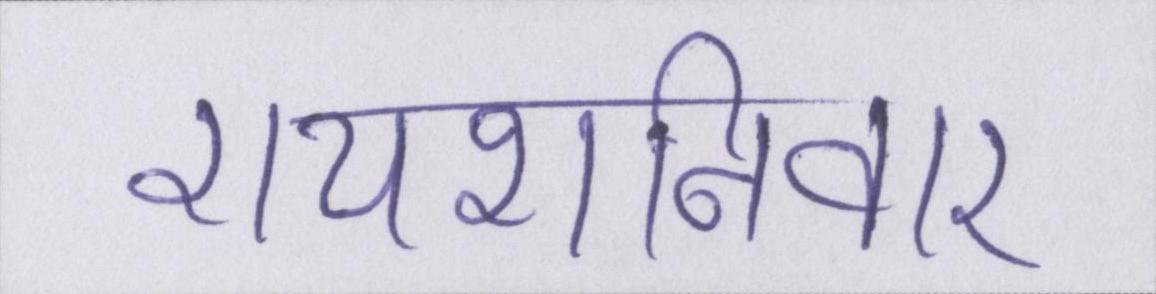 रायशनिवार